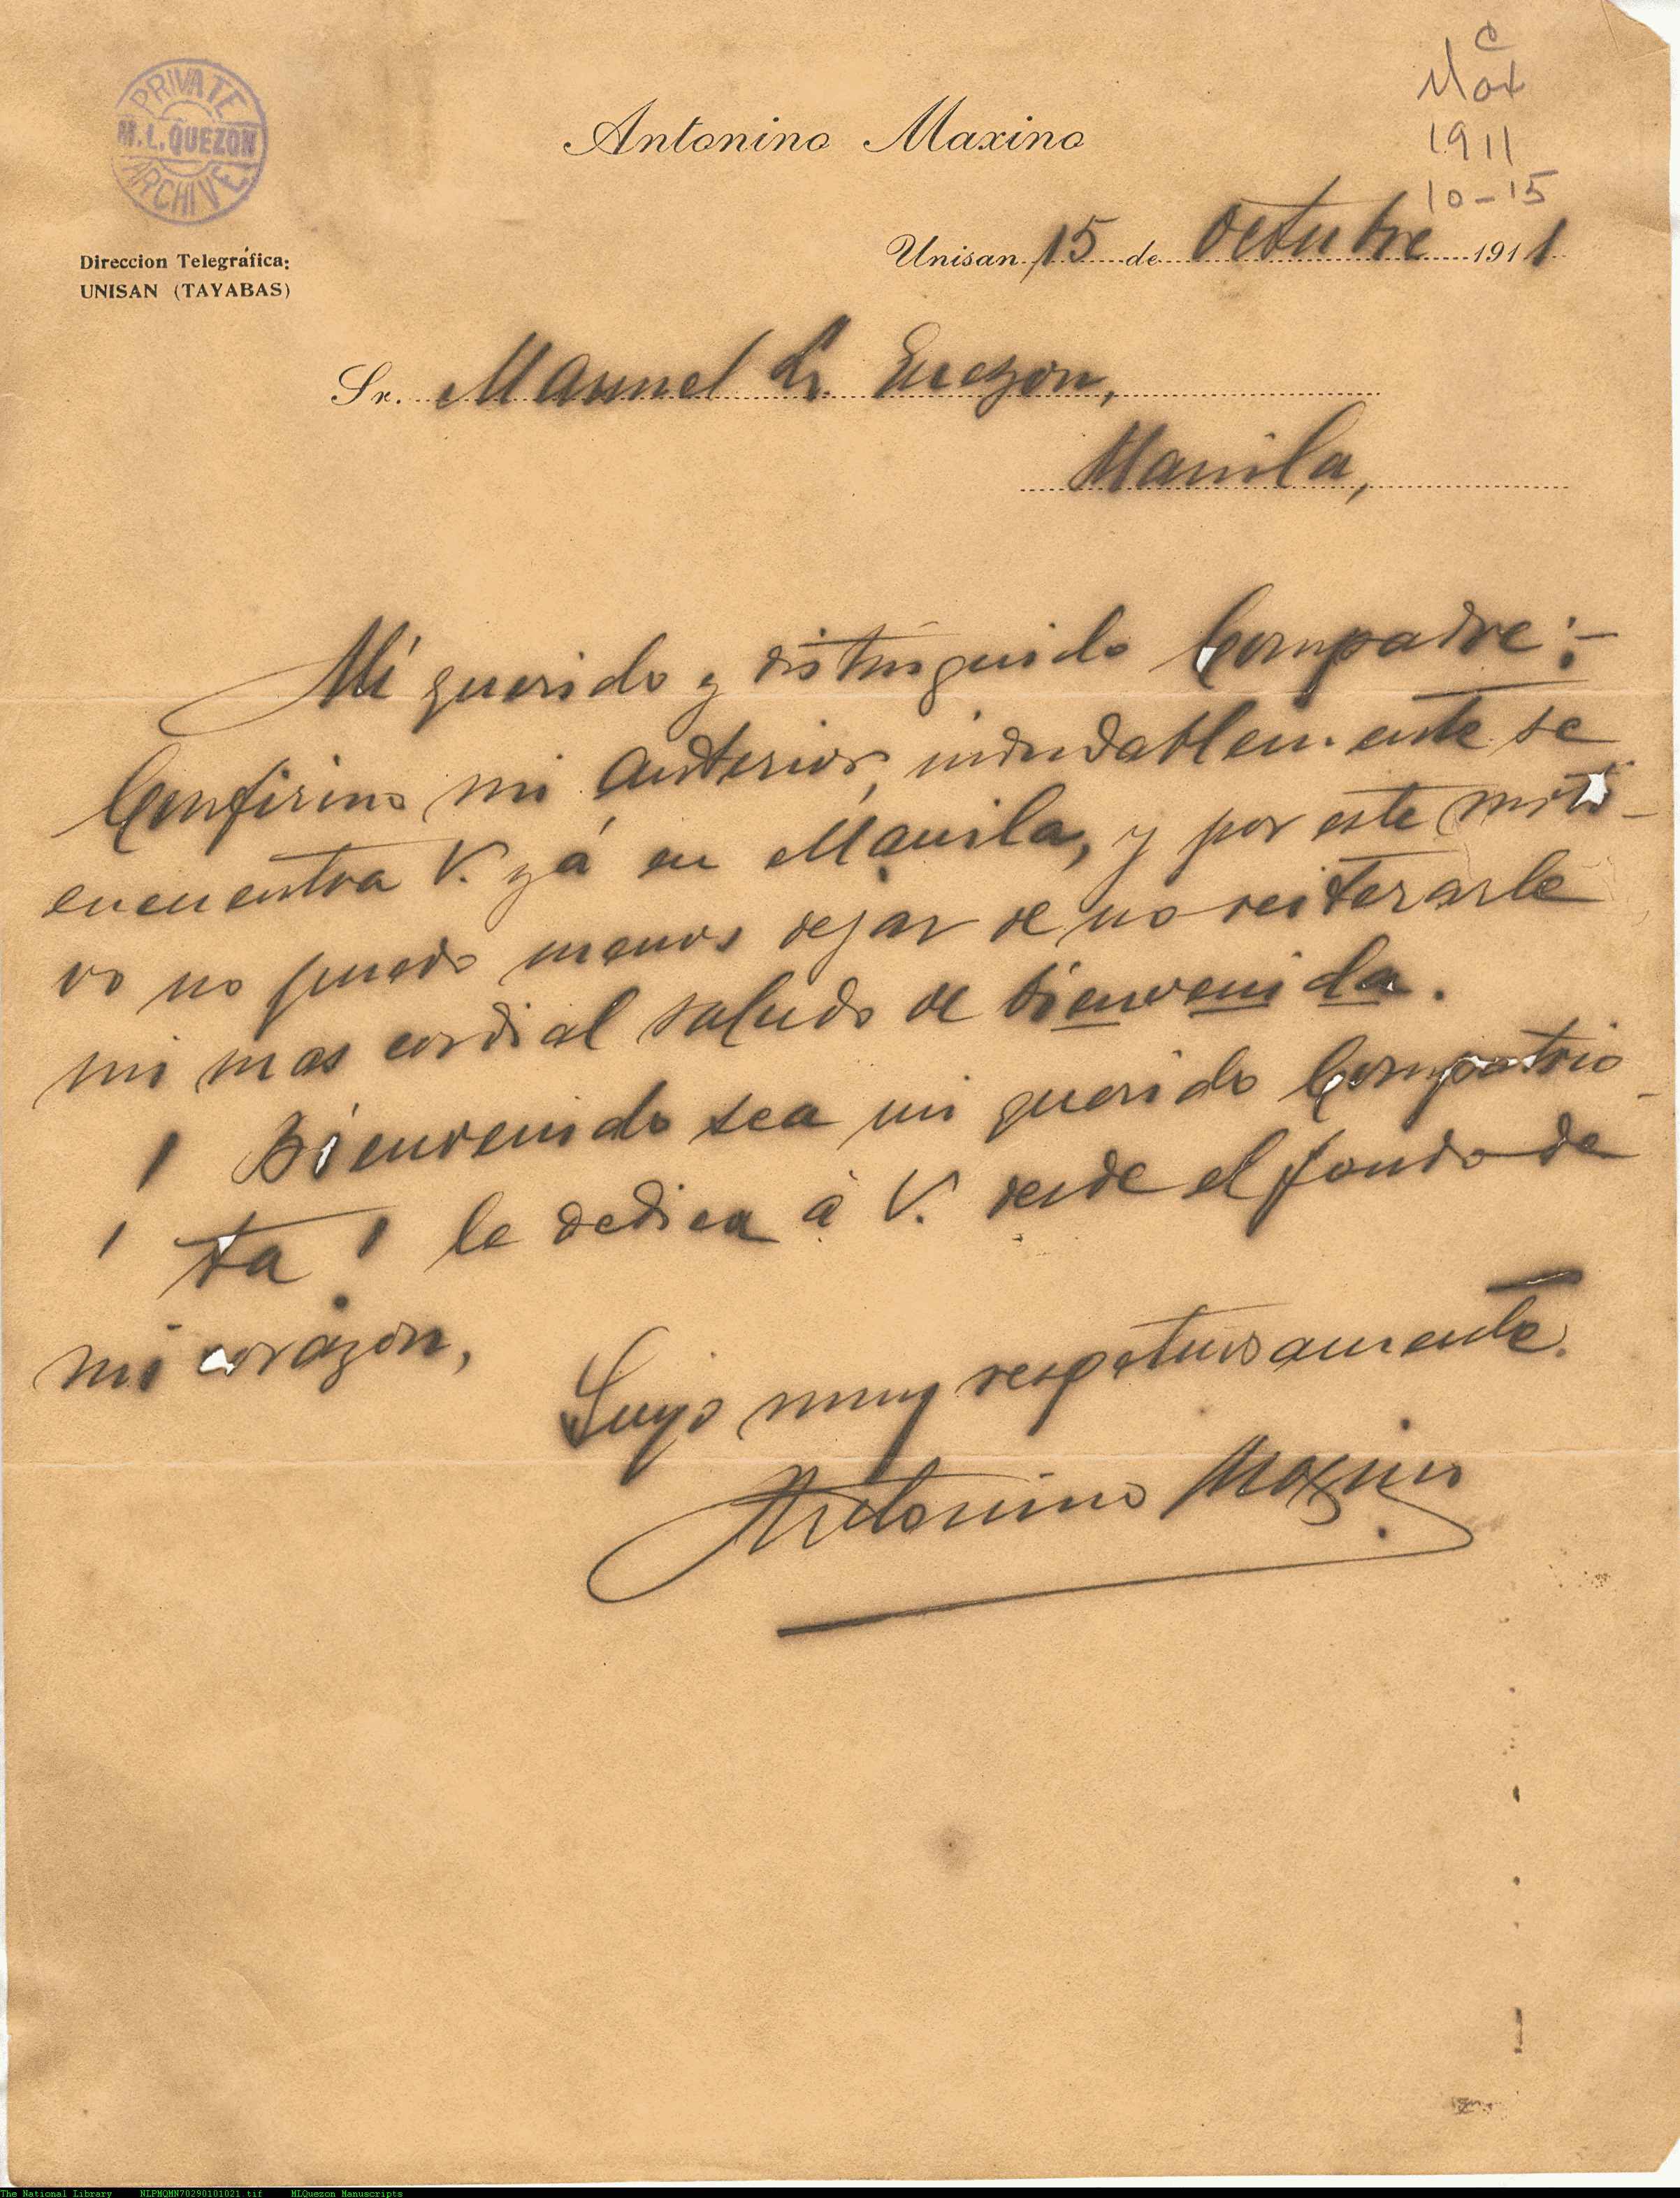 C
Max
1911
10-15
PRIVATE
M.L.QUEZON
ARCHIVE
Antonino Maxino
Direccion Telegráfica:
UNISAN (TAYABAS)
Unisan 15 de Octubre 1911
Sr. Manuel L. Quezon,
Manila,
Mi querido y distinguido Compadre:-
Confirmo mi anterior, indudablemente se
encuentra V. yá en Manila, y por este moti-
vo no puedo menos dejar de no reiterarle
mi mas cordial saludo de bienvenida.
¡ Bienvenido sea mi querido Compatrio-
ta ! le dedica á V. desde el fondo de
mi corazón,
Suyo muy respetuosamente.
Antonino Maxino
The National Library NLPMQMN70290101021.tif MLQuezon Manuscripts